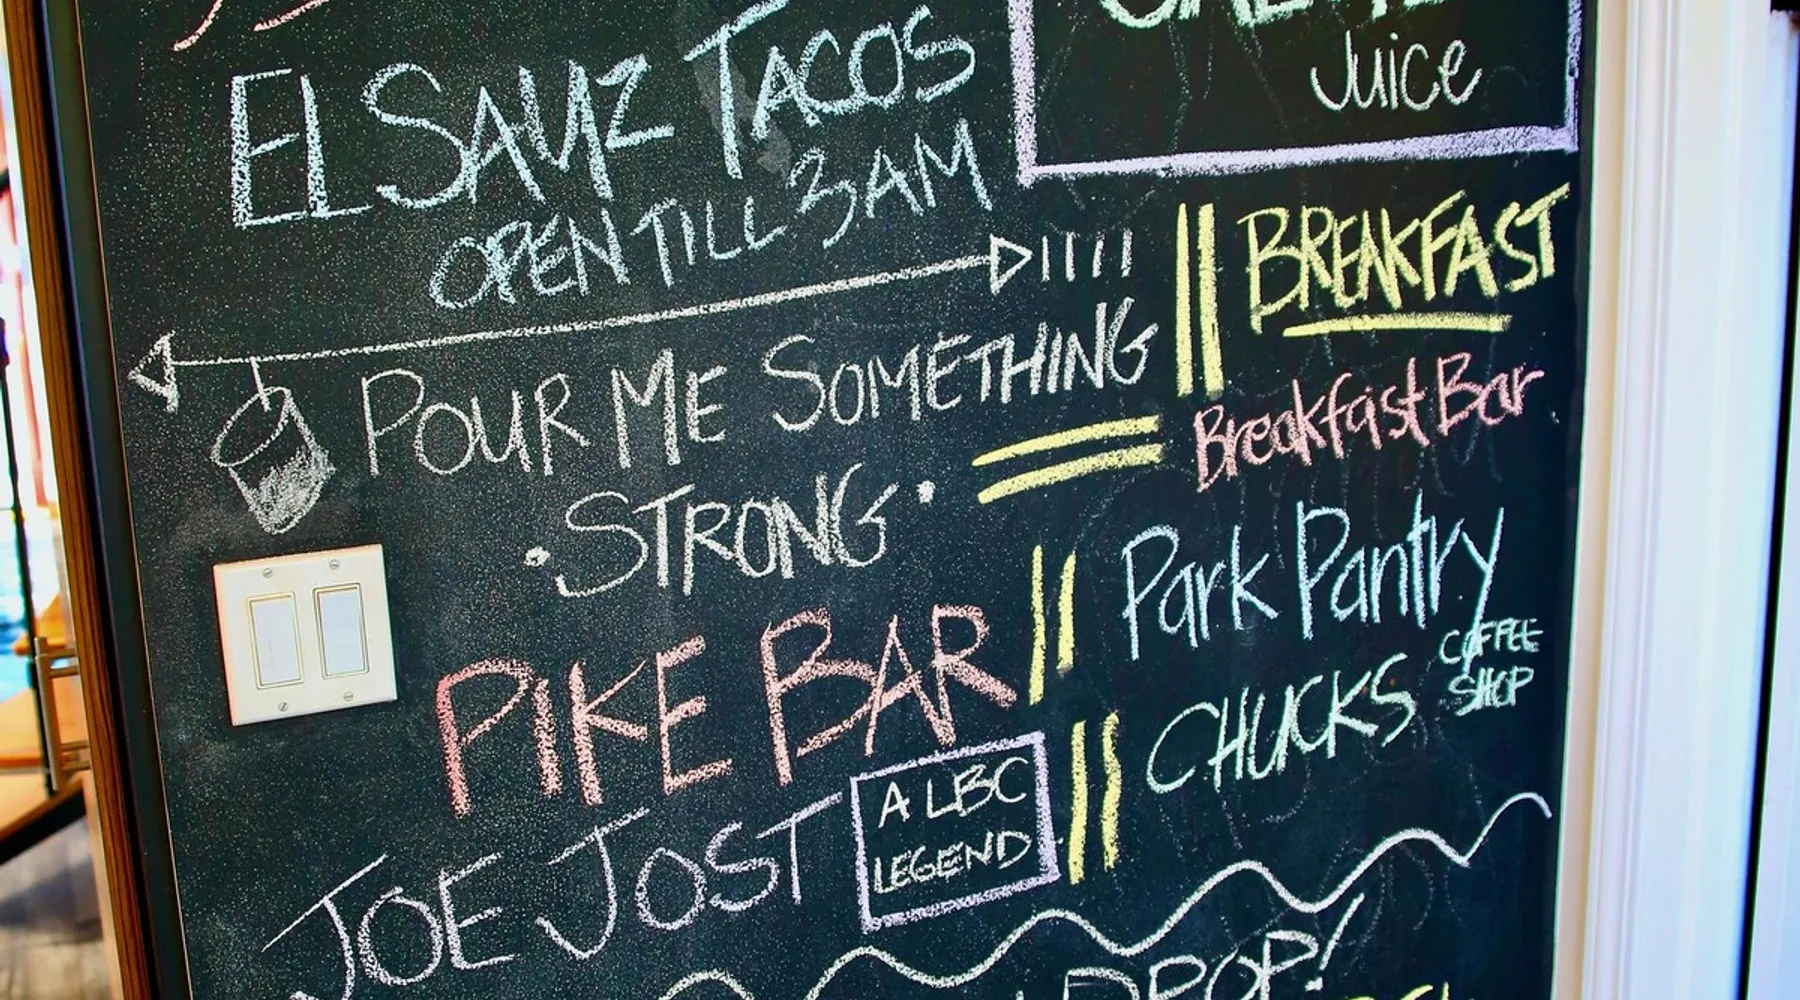 EL SAUZ TACOS
OPEN TILL 3AM
Juice
POUR ME SOMETHING
STRONG
PIKE BAR
JOE JOST
A LBC
LEGEND
BREAKFAST
Breakfast Bar
Park Pantry
CHUCKS COFFEE
SHOP
DROP!